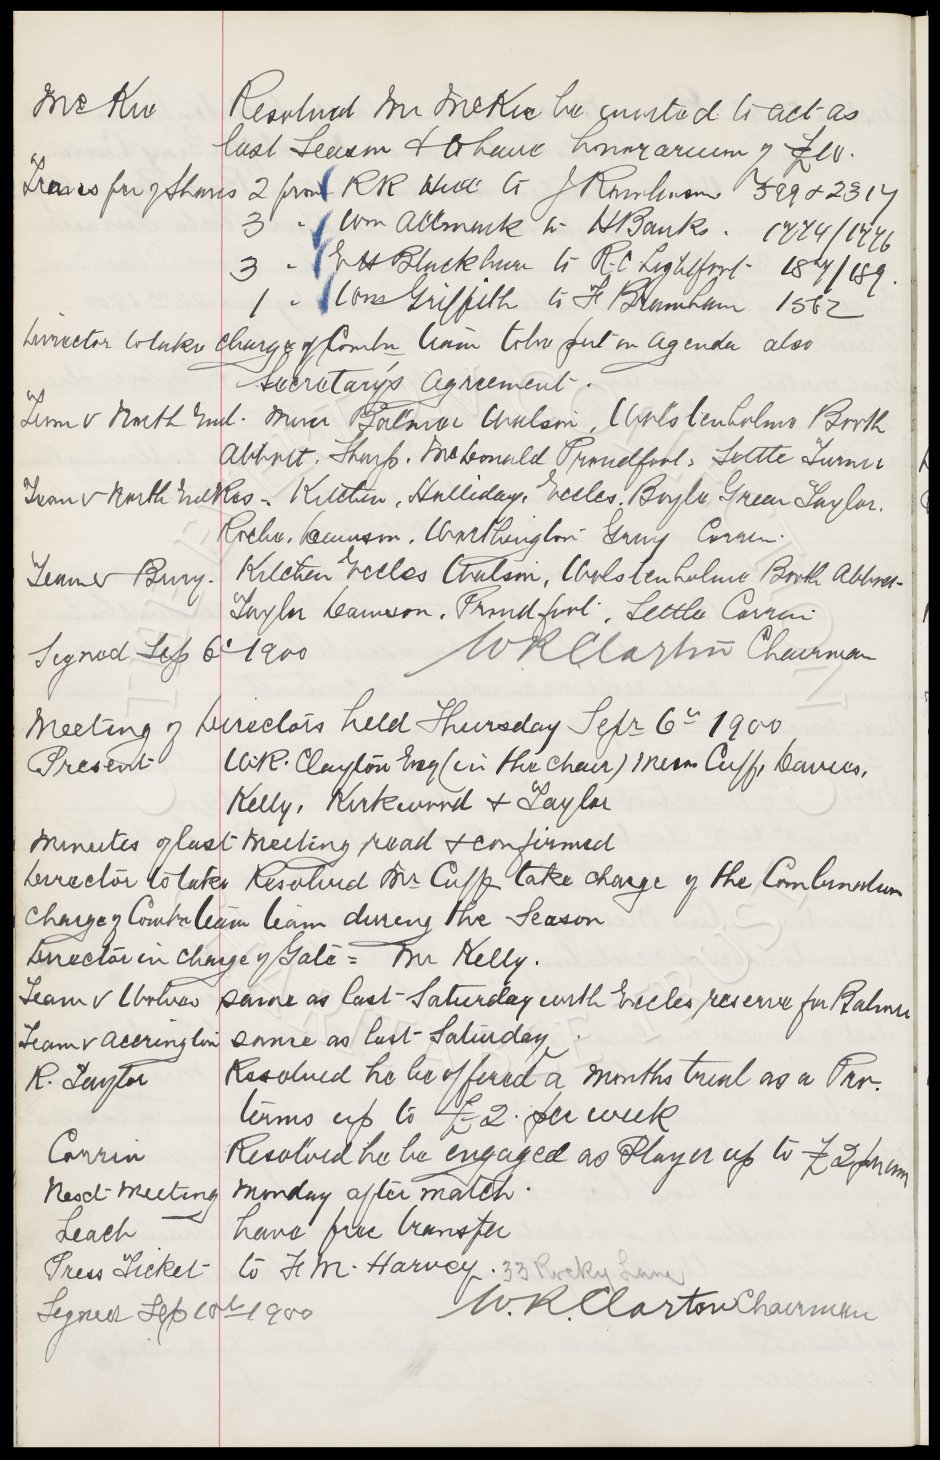 McKie Resolved Mr McKie be invited to act as
last Season & to have honorarium of £10.
Transfer of Shares 2 from R R Hill to J Rawlinson 399 & 2317
3 " Wm Allmark to H Banks. 1774/1776
3 " E H Blackburn to R. C Lightfoot 187/189.
1 " Wm Griffith to F Bramham 1562
Director to take charge of Combn team to be put on agenda also
Secretary's agreement.
Team v North End. Muir Balmer Watson, Wolstenholme Booth
Abbott, Sharp, McDonald Proudfoot, Settle Turner
Team v North End Res. Kitchen, Halliday, Eccles, Boyle Green Taylor.
Roche, Dawson, Worthington Gray Corrin.
Team v Bury. Kitchen Eccles Watson, Wolstenholme Booth Abbott
Taylor Dawson, Proudfoot, Settle Corrin
Signed Sep 6th 1900 W R Clayton Chairman
Meeting of Directors held Thursday Sepr 6th 1900
Present W.R. Clayton Esq (in the chair) Messrs Cuff, Davies,
Kelly, Kirkwood & Taylor
Minutes of last Meeting read & confirmed
Director to take Resolved Mr Cuff take charge of the Combination
charge of Combn team team during the Season
Director in charge of Gate = Mr Kelly.
Team v Wolves same as last Saturday with Eccles reserve for Balmer
Team v Accrington same as last Saturday.
R. Taylor Resolved he be offered a months trial as a Pro.
terms up to £2. per week
Corrin Resolved he be engaged as Player up to £2 per week
Next Meeting Monday after match.
Leach have free transfer
Press Ticket to F. M. Harvey. 33 Rocky Lane
Signed Sep 10th 1900 W. R. Clayton Chairman